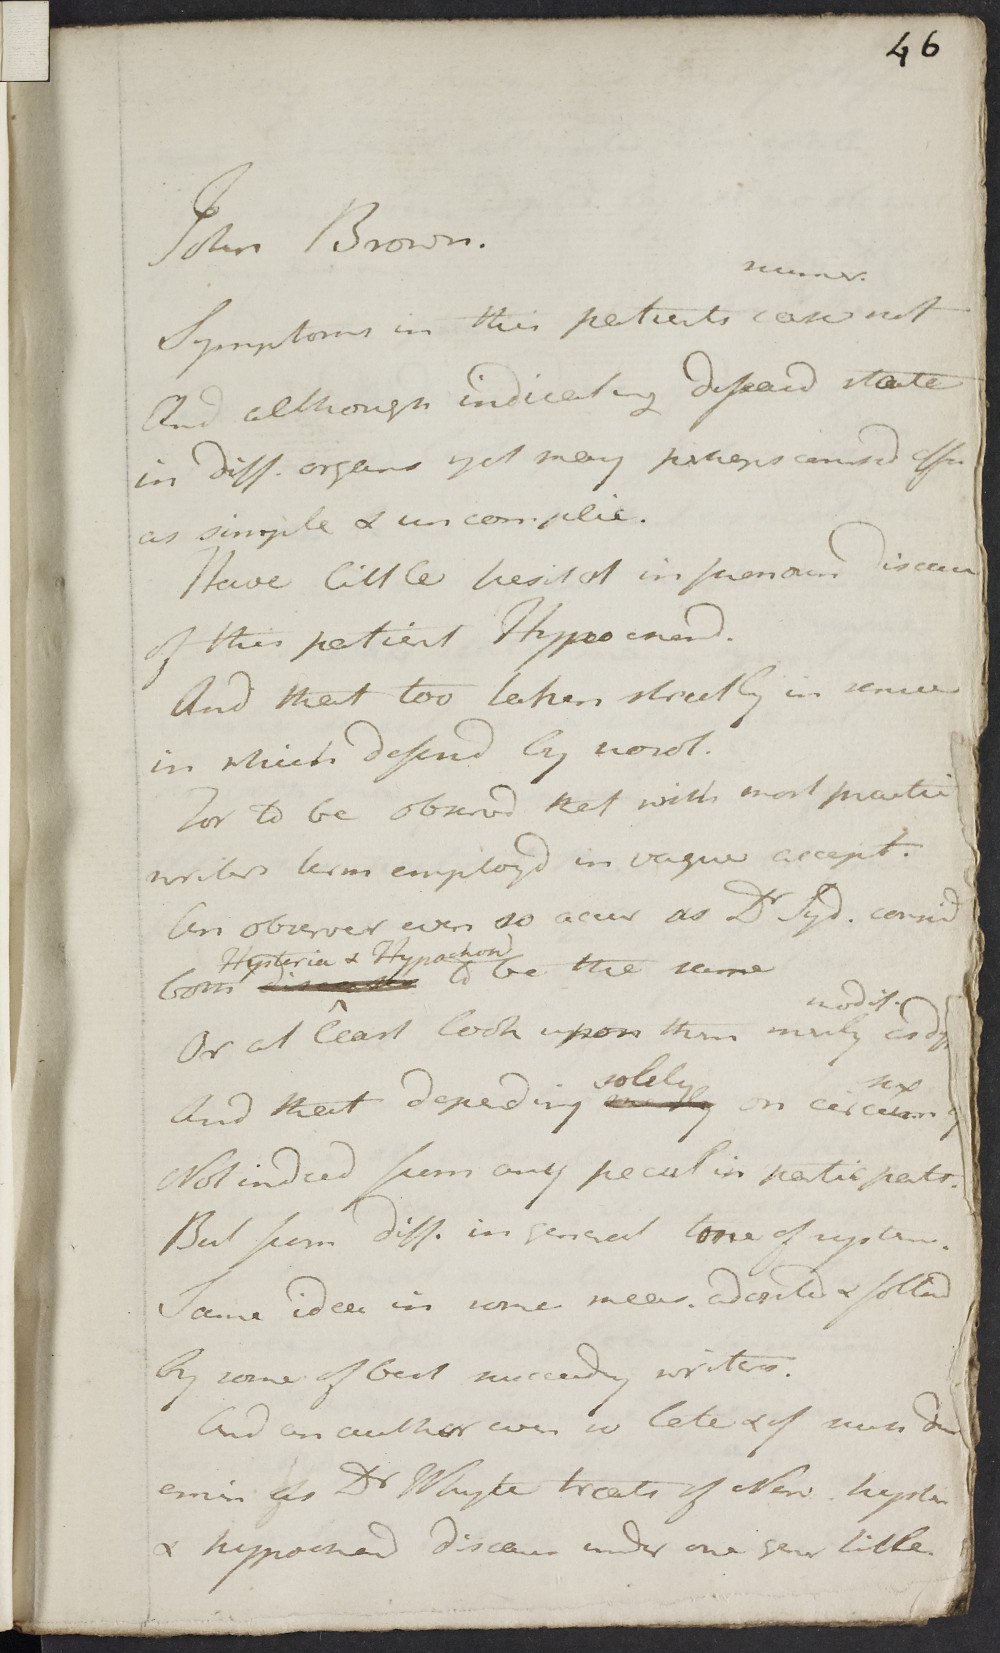 46
John Brown.
numer.
Symptoms in this patients case not
And although indicating diseasd state
in diff. organs yet may perhaps considd
as simple & uncomplic.
Have little hesitat in pronoun diseas
of this patient Hypochond.
And that too taken strictly in sense
in which defind by nosol.
For to be observd that with most practic
writers term employd in vague accept.
An observer even so acur as Dr Syd. consid
Hysteria & Hypochond
both diseases to be the same
modif.
Or at least look upon them merely as
solely sex
And that depending on circum
Not indeed from any peculi in partic parts.
But from diff. in general tone of system.
Same idea in some meas. adopted & follod
by some of best succeedg writers.
And an author even so late & of such
emin as Dr Whyte treats of Nerv. hyster
& hypochond diseases under one gener title.